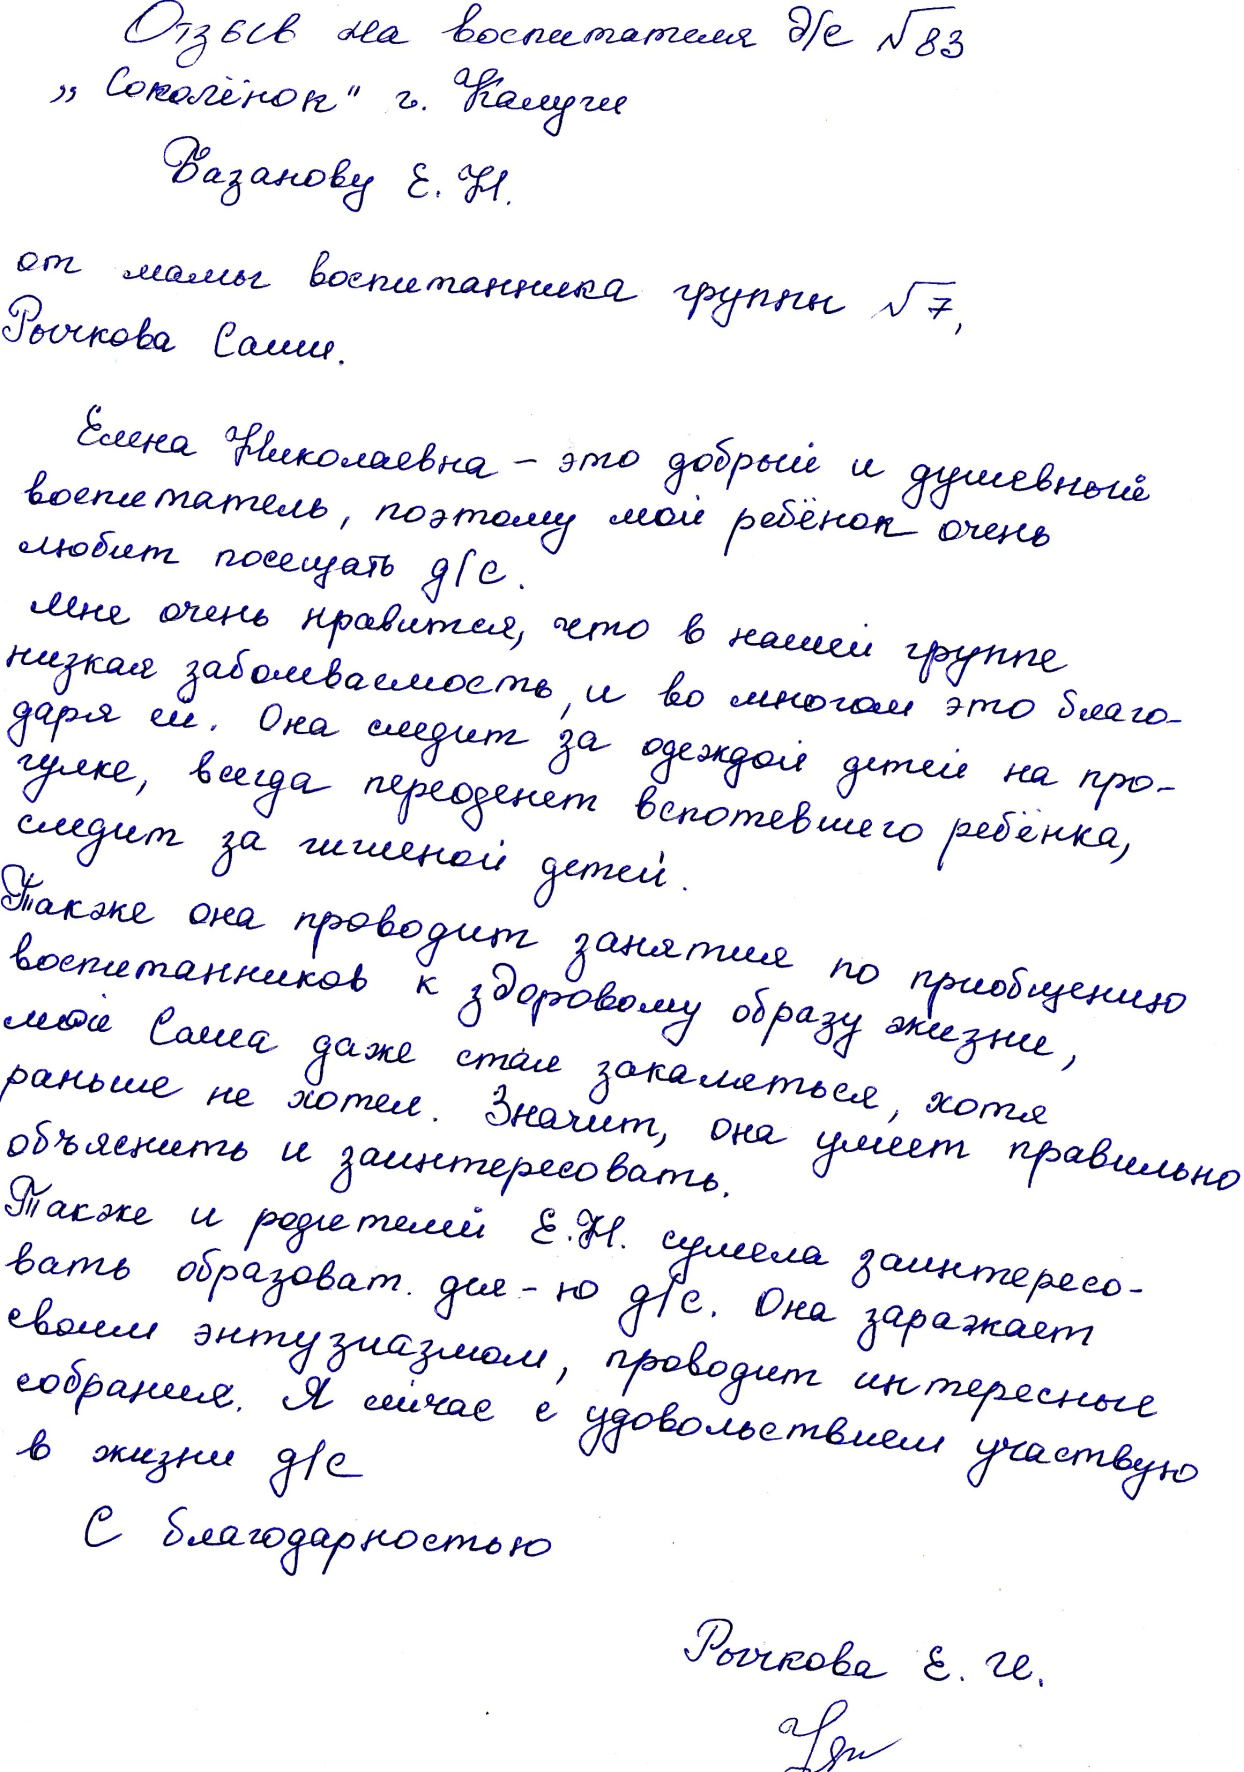 Отзыв на воспитателя д/с №83
„Соколёнок" г. Калуги
Базанову Е. Н.
от мамы воспитанника группы №7,
Рычкова Саши.
Елена Николаевна – это добрый и душевный
воспитатель, поэтому мой ребёнок очень
любит посещать д/с.
Мне очень нравится, что в нашей группе
низкая заболеваемость, и во многом это благо-
даря ей. Она следит за одеждой детей на про-
гулке, всегда переоденет вспотевшего ребёнка,
следит за гигиеной детей.
Также она проводит занятия по приобщению
воспитанников к здоровому образу жизни,
мой Саша даже стал закаляться, хотя
раньше не хотел. Значит, она умеет правильно
объяснить и заинтересовать.
Также и родителей Е.Н. сумела заинтересо-
вать образоват. дея-ю д/с. Она заражает
своим энтузиазмом, проводит интересные
собрания. Я сейчас с удовольствием участвую
в жизни д/с
С благодарностью
Рычкова Е. И.